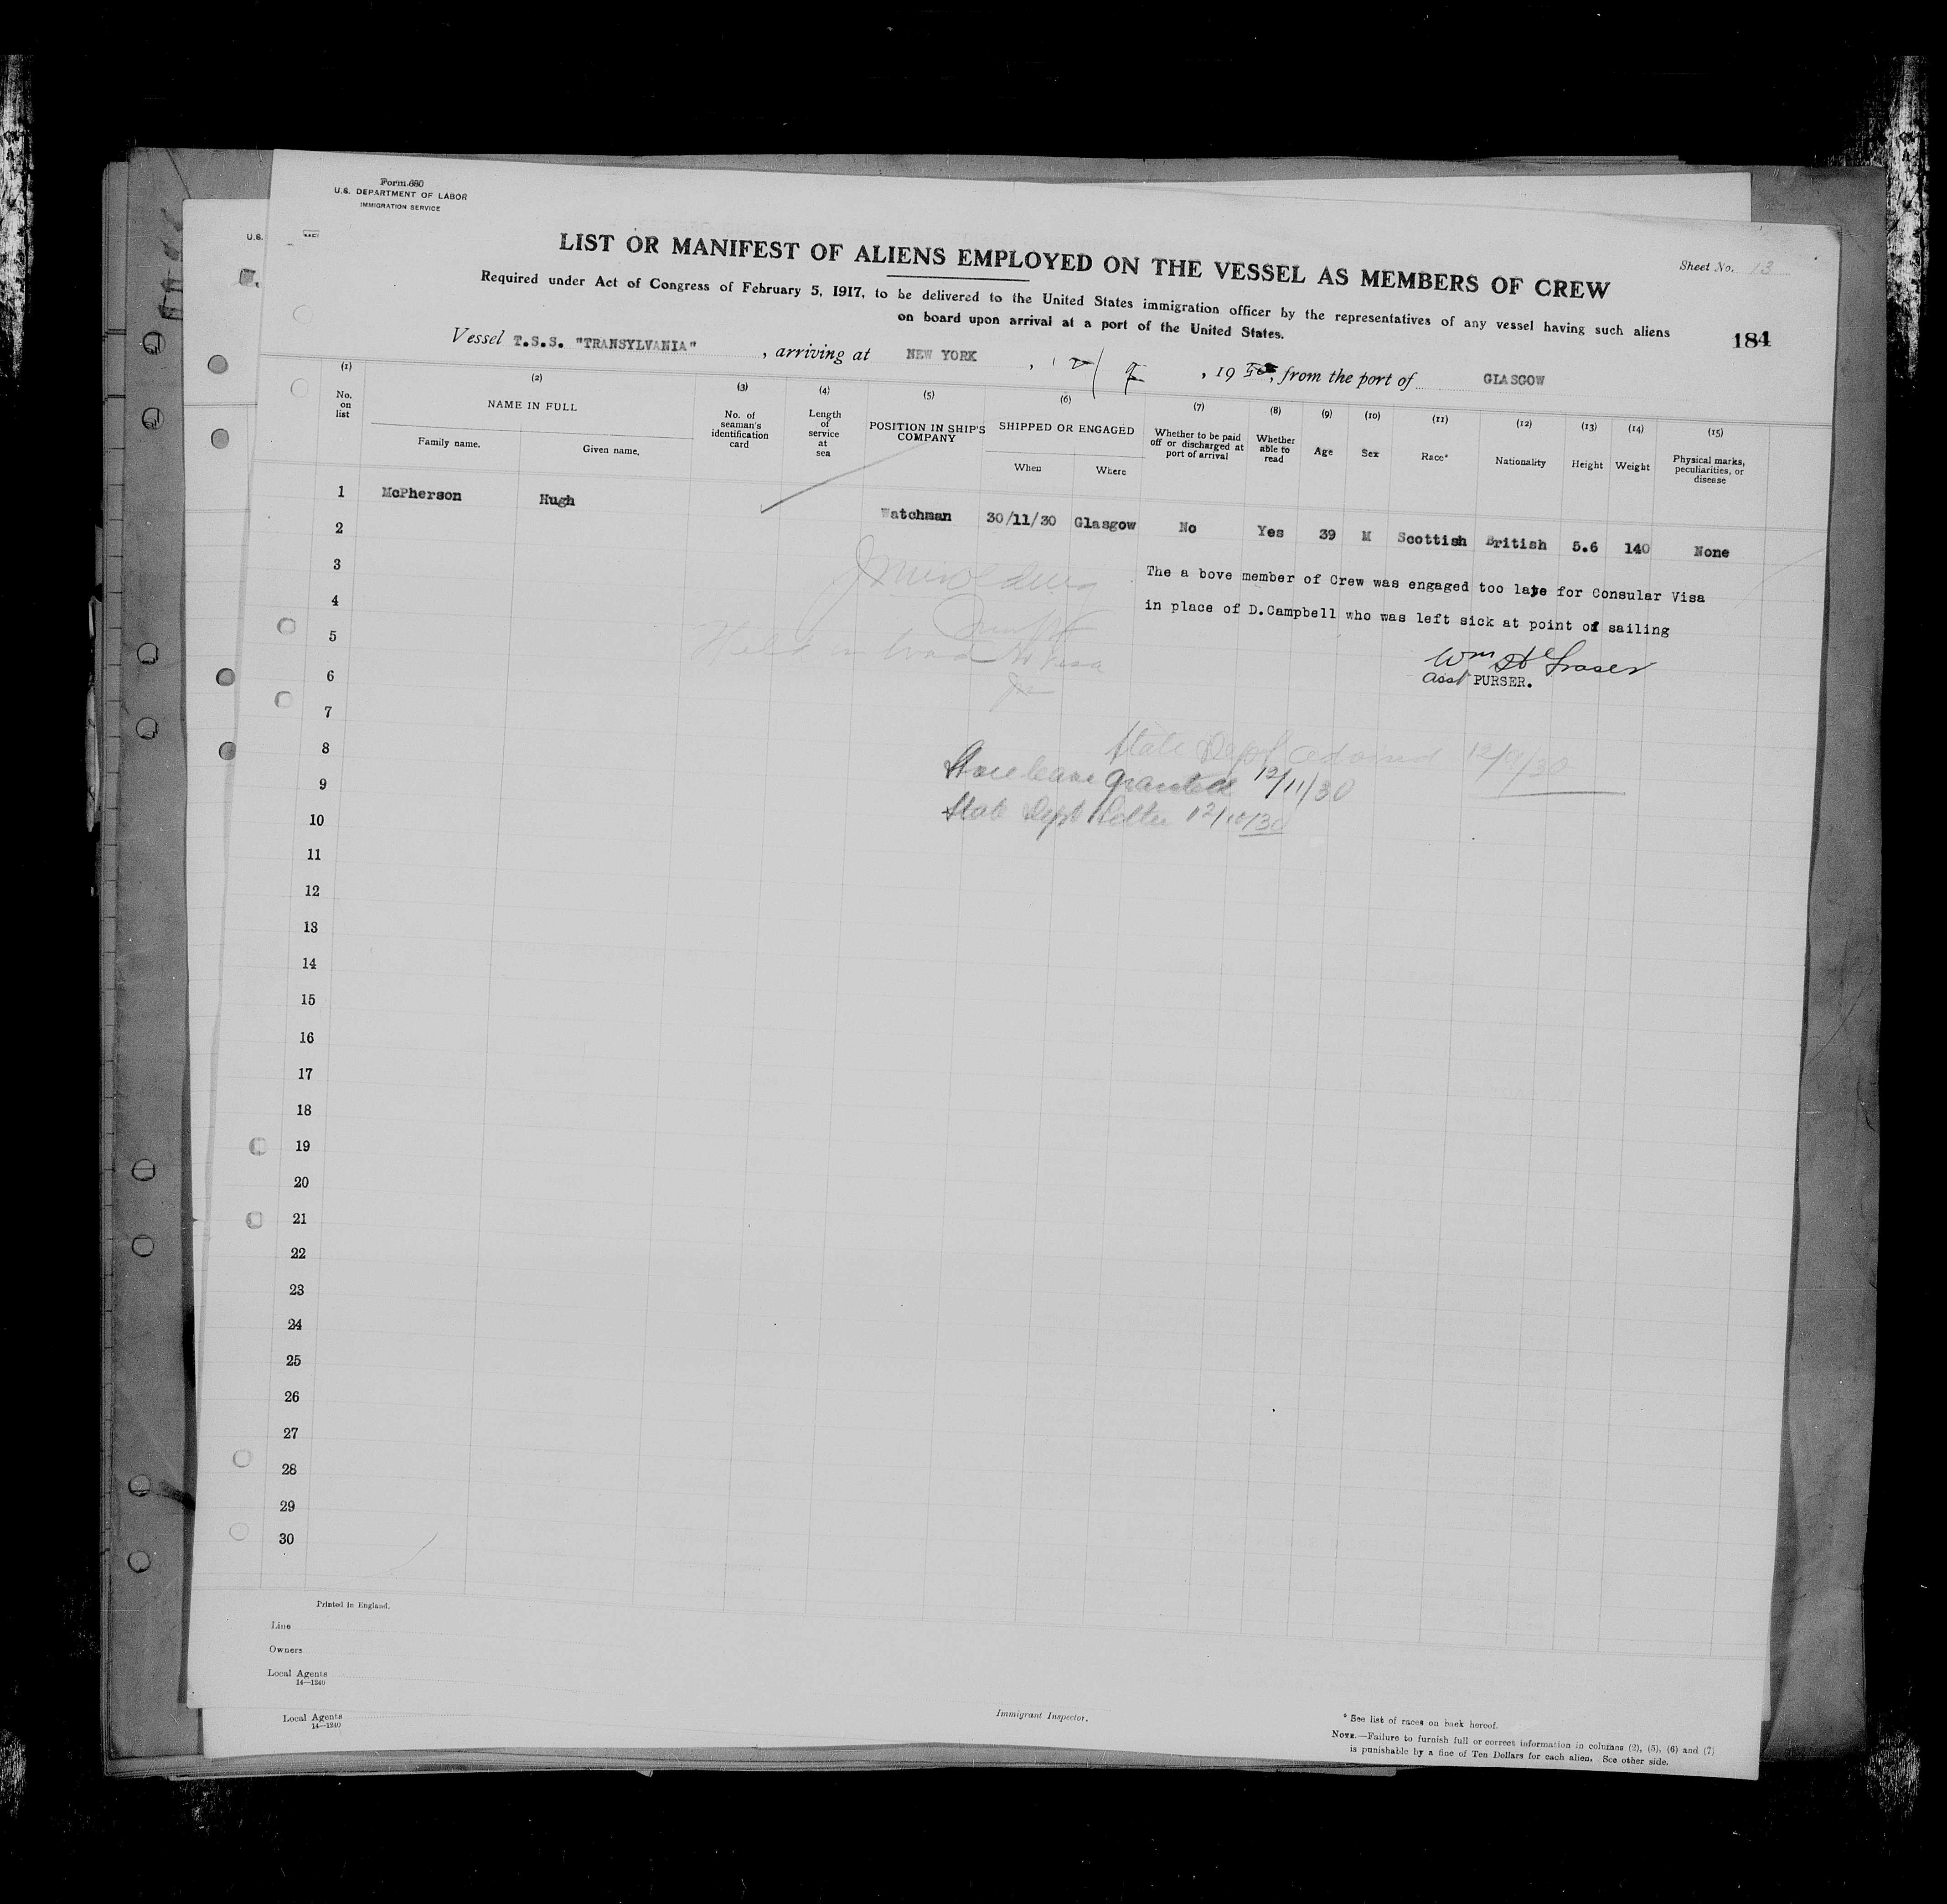 Form 680
U.S. DEPARTMENT OF LABOR
IMMIGRATION SERVICE
U.S.
LIST OR MANIFEST OF ALIENS EMPLOYED ON THE VESSEL AS MEMBERS OF CREW
Sheet No. 13
Required under Act of Congress of February 5, 1917, to be delivered to the United States immigration officer by the representatives of any vessel having such aliens
on board upon arrival at a port of the United States.
184
Vessel T.S.S. "TRANSYLVANIA", arriving at NEW YORK, 19, from the port of GLASGOW
(1) (2) (3) (4) (5) (6) (7) (8) (9) (10) (11) (12) (13) (14) (15)
No. on list
NAME IN FULL
Family name. Given name.
No. of seaman's identification card
Length of service at sea
POSITION IN SHIP'S COMPANY
SHIPPED OR ENGAGED
When Where
Whether to be paid off or discharged at port of arrival
Whether able to read
Age
Sex
Race*
Nationality
Height
Weight
Physical marks, peculiarities, or disease
1 McPherson Hugh Watchman 30/11/30 Glasgow No Yes 39 M Scottish British 5.6 140 None
2
3 The a bove member of Crew was engaged too late for Consular Visa
4 in place of D.Campbell who was left sick at point of sailing
5
Wm H Fraser
6 Asst PURSER.
7
8 State Dept advised 12/9/30
Shore leave granted 12/11/30
9
10 State Dept Letter 12/10/30
11
12
13
14
15
16
17
18
19
20
21
22
23
24
25
26
27
28
29
30
Printed in England.
Line
Owners
Local Agents
14—1240
Local Agents
14—1240
Immigrant Inspector.
* See list of races on back hereof.
NOTE.—Failure to furnish full or correct information in columns (2), (5), (6) and (7)
is punishable by a fine of Ten Dollars for each alien. See other side.